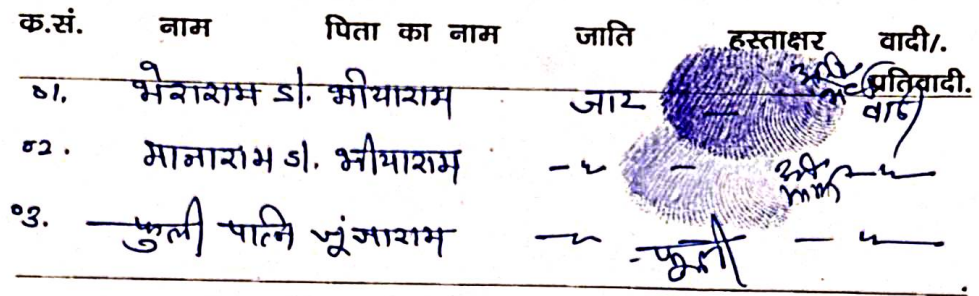 क.सं. नाम पिता का नाम जाति हस्ताक्षर वादी/.
प्रतिवादी.
01. भेराराम S/o. भीयाराम जाट वादी
02. मानाराम S/o. भीयाराम -〃- -〃-
03. फुली पत्नि पूंजाराम -〃- फुली -〃-